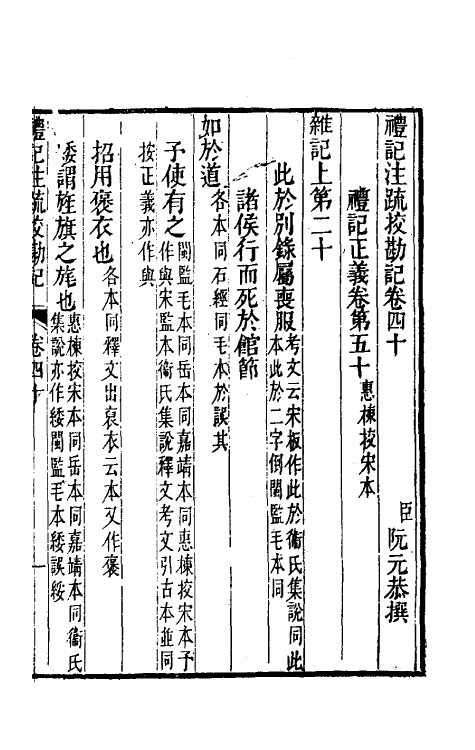 禮記注疏挍勘記卷四十
臣阮元恭撰
禮記正義卷第五十惠棟挍宋本
雜記上第二十
此於別錄屬喪服考文云宋板作此於衞氏集說同此
本此於二字倒閩監毛本同
諸侯行而死於館節
如於道各本同石經同毛本於誤其
予使有之閩監毛本同岳本同嘉靖本同惠棟挍宋本予
作與宋監本衞氏集說釋文考文引古本並同
按正義亦作與
招用褒衣也各本同釋文出裒衣云本又作褒
緌謂旌旗之旄也惠棟挍宋本同岳本同嘉靖本同衞氏
集說亦作緌閩監毛本緌誤綏
禮記注疏挍勘記
卷四十
一